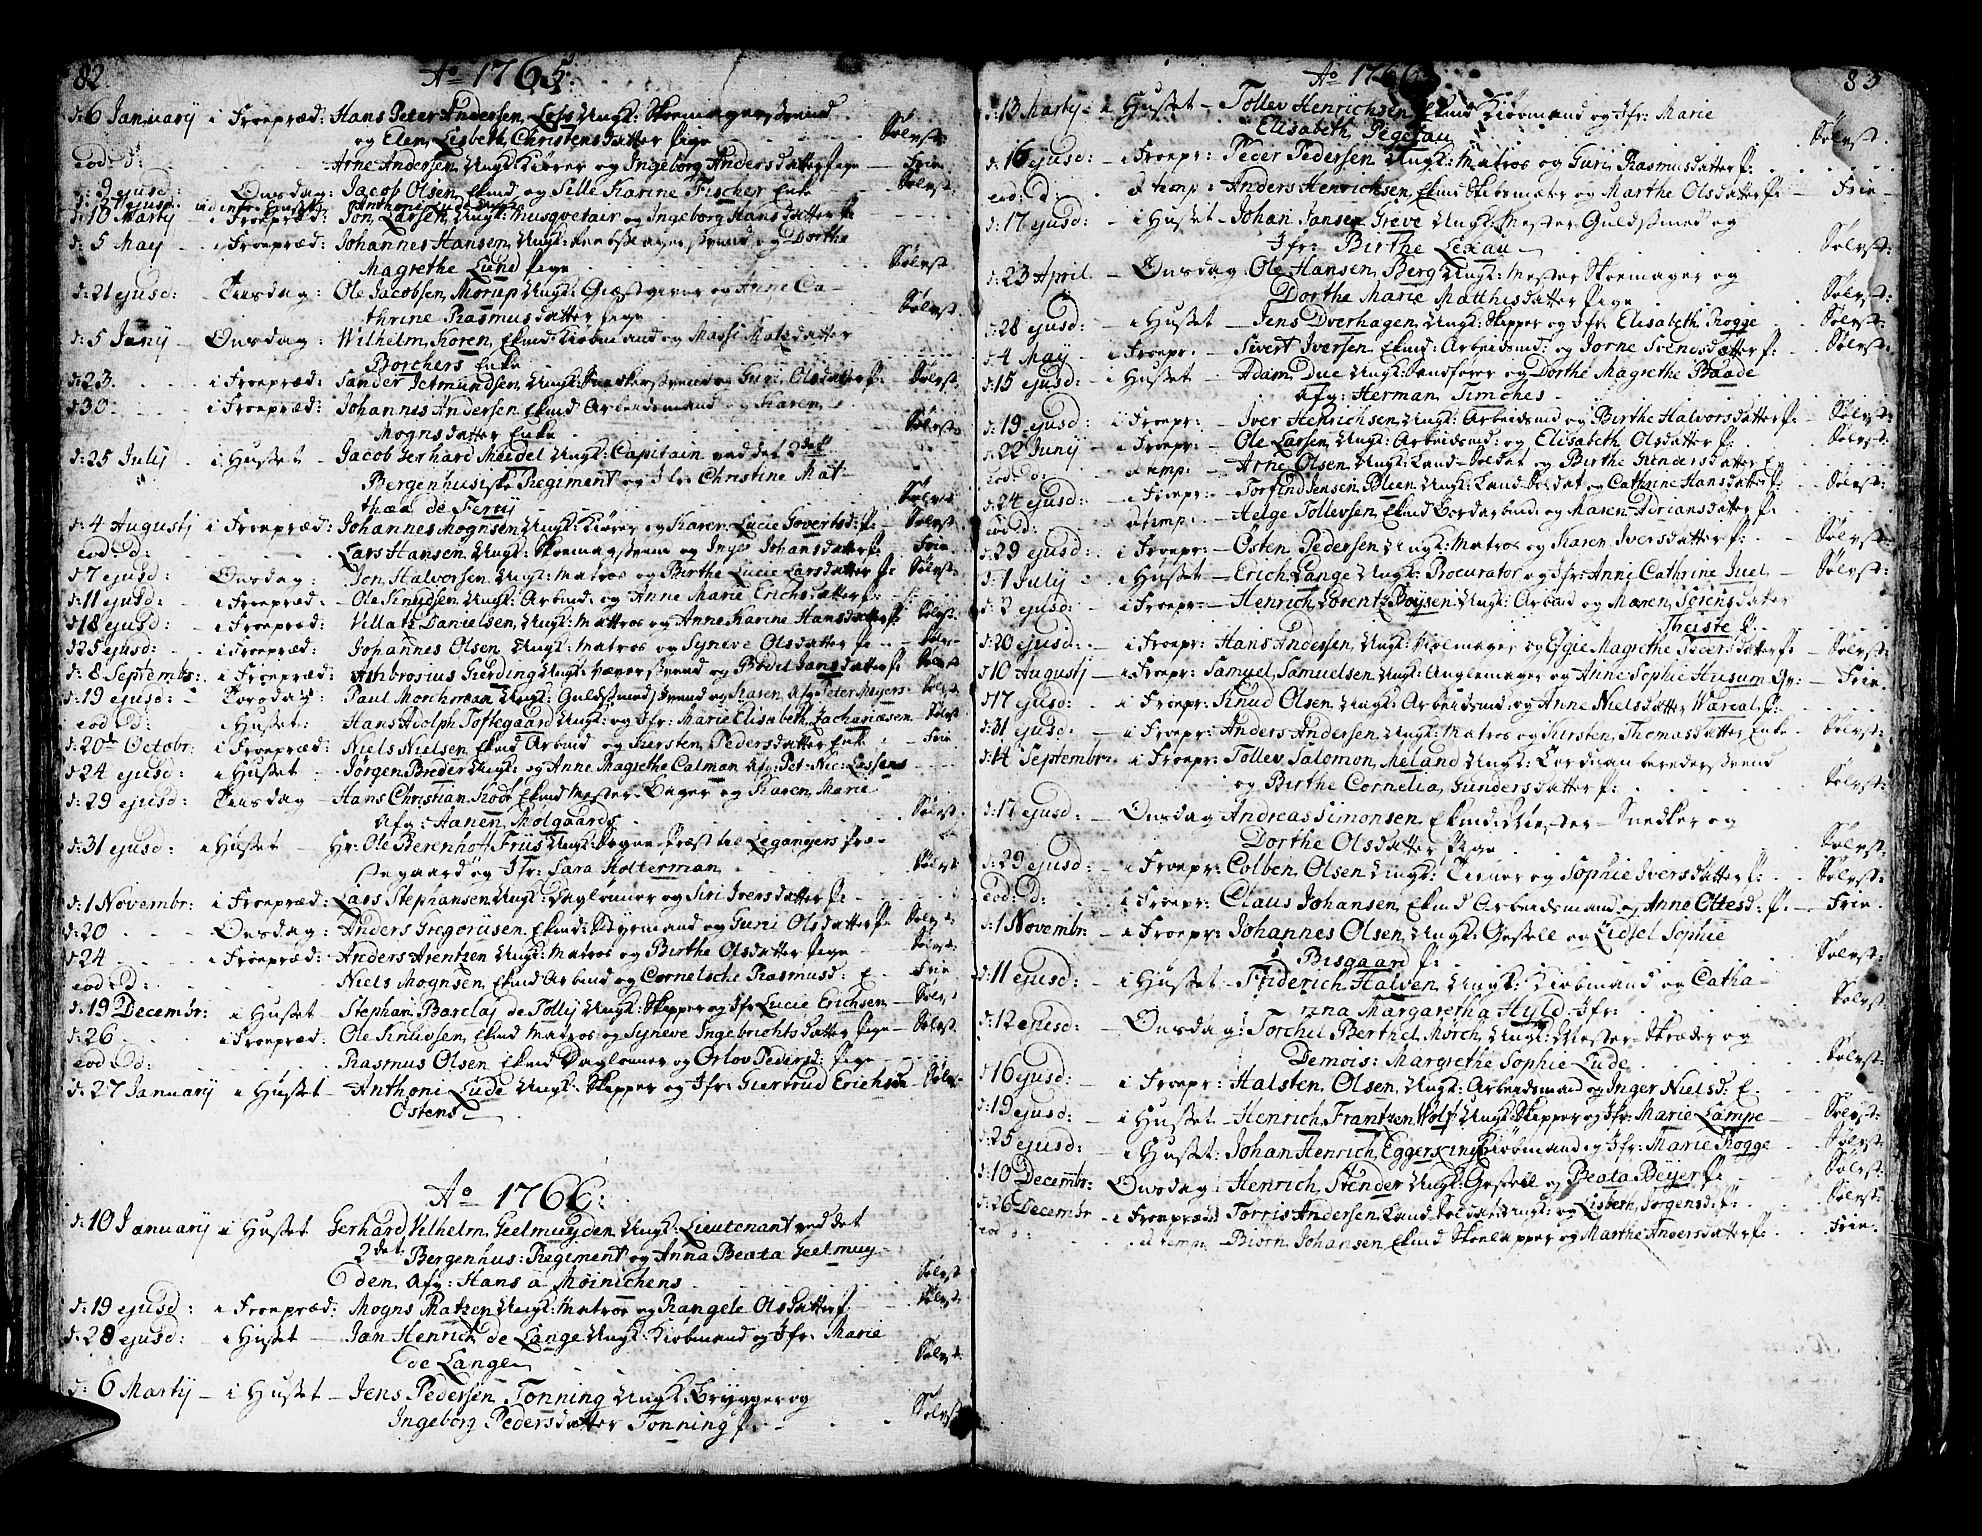 82
Ao 1765:
d: 6 January i Froepræd: Hans Peter Andersen Ungk: Skoemagersvend
og Elen Lisbeth Christensdatter Pige Sølvst:
eod: d: Arne Andersen Ungk: Kiører og Ingeborg Andersdatter Pige Frie
d: 9 ejusd: Onsdag: Jacob Olsen Ekmd og Sille Karine Fischer Enke Sølvst:
d: 10 Marty i Froepræd: Jon Larsen Ungk: Musqvetair og Ingeborg Hansdatter P:
d: 5 May i Froepræd: Johannes Hansen Ungk: og Dorthe
Magrethe Lund Pige Sølvst
d: 21 ejusd: Tiisdag: Ole Jacobsen Morup Ungk: Giæstgiver og Anne Ca-
thrine Rasmusdatter Pige Sølvst
d: 5 Juny Onsdag: Wilhelm Koren Ekmd Kiøbmand og Massi Matsdatter
Borchers Enke
d: 23 i Froepræd: Sander Jetmundsen Ungk: og Guri Olsdatter P: Sølvst
d: 30 i Froepræd: Johannes Andersen Ekmd Arbeidsmand og Karen
Mognsdatter Enke Sølvst
d: 25 July i Huset Jacob Gerhard Meidel Ungk: Capitain ved det 2det
Bergenhusiske Regiment og Jfr: Christine Mat-
thæa de Ferry Sølvst
d: 4 Augusty i Froepræd: Johannes Mognsen Ungk: Kiører og Karen Lucie Govertsd: P: Sølvst
eod: d: Lars Hansen Ungk: Skoemagersvend og Inger Johansdatter P: Frie
d: 7 ejusd: Onsdag: Jon Halvorsen Ungk: Matros og Birthe Lucie Larsdatter P: Sølvst:
d: 11 ejusd: i Froepræd: Ole Knudsen Ungk: Arbmd: og Anne Marie Erichsdatter P:
d: 18 ejusd: i Froepræd: Villatz Danielsen Ungk: Mattros og Anne Karine Hansdatter P: Sølvst
d: 25 ejusd: i Froepræd: Johannes Olsen Ungk: Matros og Syneve Olsdatter P: Sølv
d: 8 Septembr: i Froepræd: Ambrosius Gierding Ungk: Væversvend og Bodil Jansdatter P: Sølvst
d: 19 ejusd: Torsdag: Paul Morchman Ungk: Guldsmedsvend og Karen Afg: Peter Meyers Sølvst
eod: d: i Huset: Hans Adolph Toftegaard Ungk: og Jfr: Marie Elisabeth Zachariasen Sølvst
d: 20de Octobr: i Froepræd: Niels Nielsen Ekmd Arbmd og Kiersten Pedersdatter Enke Frie
d: 24 ejusd: i Huset Jørgen Breder Ungk: og Anne Magrethe Calman Afg: Pet: Nic: Lossens
d: 29 ejusd: Tiisdag Hans Christian Rode Ekmd Mester Bager og Karen Marie
Afg: Hanen Molgaards Sølvst
d: 31 ejusd: i Huset Hr: Ole Berenhoff Friis Ungk: Sogne Præst til Legangers Præ-
stegaard og Jfr: Sara Holterman Sølvst
d: 1 Novembr: i Froepræd: Lars Stephansen Ungk: Dagløner og Siri Iversdatter P:
d: 20 Onsdag: Anders Gregoriisen Ekmd: Styrmand og Guni Olsdatter P: Sølvst:
d: 24 i Froepræd: Anders Arentzen Ungk: Matros og Birthe Olsdatter Pige Sølvst:
eod: d: Niels Mognsen Ekmd Arbmd og Cornelsche Rasmusd: E. Frie
d: 19 Decembr: i Huset Stephan Barclaj de Tolly Ungk: Skipper og Jfr Lucie Erichsen Sølvst
d: 26 i Froepræd: Ole Knudsen Ekmd Matros og Syneve Ingebrichtsdatter Pige Sølvst
eod: d: Rasmus Olsen Ekmd Dagløner og Orlov Pedersd: Pige
d: 27 January i Huset Anthoni Lude Ungk: Skipper og Jfr: Giertrud Erichsd Sølvst
Ostens
Ao 1766:
d: 10 January i Huset Gerhard Vilhelm Geelmuyden Ungk: Lieutenant ved det
2det Bergenhus: Regiment og Anna Beata Geelmuy-
den Afg: Hans a Møinichens Sølvst
d: 19 ejusd: i Froepræd: Mogns Matzen Ungk: Matros og Rangele Olsdatter P: Sølvst:
d: 28 ejusd: i Huset Jan Henrich de Lange Ungk: Kiøbmand og Jfr: Marie
de Lange Sølvst
d: 6 Marty i Huset Jens Pedersen Tonning Ungk: Brygger og
Ingeborg Pedersdatter Tonning P: Sølvst
83
Ao 1766
d: 13 Marty i Huset Tollev Henrichsen Ekmd Kiøbmand og Jfr: Marie
Elisabeth Pegelau Sølvst:
d: 16 ejusd: i Froepr: Peder Pedersen Ungk: Matros og Guri Rasmusdatter P:
eod: d: d temp: Anders Henrichsen Ekmd og Marthe Olsdatter P: Frie
d: 17 ejusd: i Huset Johan Jansen Greve Ungk: Mester Guldsmed og
Jfr: Birthe Lexau Sølvst:
d: 23 April Onsdag Ole Hansen Berg Ungk: Mester Skoemager og
Dorthe Marie Matthisdatter Pige Sølvst:
d: 28 ejusd: i Huset Jens Dverhagen Ungk: Skipper og Jfr Elisabeth Rogge Sølvst:
d: 4 May i Froepr: Sivert Iversen Ekmd: Arbeidsmd: og Jorne Svensdatter P: Sølvst:
d: 15 ejusd: i Huset Adam Due Ungk: og Dorthe Magrethe Baade
Afg: Herman Timches
d: 19 ejusd: i Froepr: Iver Henrichsen Ungk: Arbeidsmd og Birthe Halvorsdatter P: Sølvst:
d: 22 Juny i Froepr: Ole Larsen Ungk: Arbeidsmd: og Elisabeth Olsdatter P: Sølvst:
eod: d: d temp: Arne Olsen Ungk: Land-Soldat og Birthe Gundersdatter E
d: 24 ejusd: i Froepr: Torfind Jensen Bleen Ungk: Land Soldat og Cathrine Hansdatter P: Sølvst:
eod: d: d temp: Helge Tollevsen Ekmd Bordarbmd: og Maren Doriansdatter P:
d: 29 ejusd: i Froepr: Osten Pedersen Ungk: Matros og Karen Iversdatter P: Sølvst:
d: 1 July i Huset Erich Lange Ungk: Procurator og Jfr: Anne Cathrine Juel Sølvst:
d: 2 ejusd: i Froepr: Henrich Lorentz Boysen Ungk: Arbmd og Maren Sorensdatter
Theiste P:
d: 20 ejusd: i Froepr: Hans Andersen Ungk: Hielmager og Effie Magrethe Peersdatter P: Sølvst:
d: 10 Augusty i Froepr: Samuel Samuelsen Ungk: Anglemager og Anne Sophie Husum Frie
d: 17 ejusd: i Froepr: Knud Olsen Ungk: Arbeidsmd: og Anne Nielsdatter Warial P:
d: 31 ejusd: i Froepr: Anders Andersen Ungk: Matros og Kirsten Thomasdatter Enke Sølvst:
d: 14 Septembr: i Froepr: Tollev Salomon Meland Ungk: Corduan beredersvend
og Birthe Cornelia Gundersdatter P: Sølvst:
d: 17 ejusd: Onsdag Andreas Simonsen Ekmd: Mester Snedker og
Dorthe Olsdatter Pige Sølvst:
d: 29 ejusd: i Froepr: Colben Olsen Ungk: Tiener og Sophie Iversdatter P: Sølvst:
eod: d: i Froepr: Claus Johansen Ekmd Arbeidsmand og Anne Ottesd: P: Frie
d: 1 Novembr: i Froepr: Johannes Olsen Ungk: Gesell og Lidsel Sophie
Bisgaard P: Sølvst:
d: 11 ejusd: i Huset Friderich Halven Ungk: Kiøbmand og Catha-
rina Margaretha Hyld Jfr: Sølvst
d: 12 ejusd: Onsdag: Torchil Berthel Morch Ungk: Mester Skræder og
Demois: Margrethe Sophie Lude Sølvst:
d: 16 ejusd: i Froepr: Halsten Olsen Ungk: Arbeidsmand og Inger Nielsd: E
d: 19 ejusd: i Huset Henrich Frantzen Wolf Ungk: Skipper og Jfr: Marie Lampe Sølvst:
d: 25 ejusd: i Huset: Johan Henrich Eggerking Kiøbmand og Jfr: Marie Rogge Sølvst:
d: 10 Decembr: Onsdag: Henrich Stender Ungk: Gesell og Beata Beyer P: Sølvst:
d: 26 Decembr i Froepræd Torris Andersen Land Soldat Ungk: og Lisbeth Jorgensd: P: Sølvst:
eod d: d temp: Biorn Johansen Ekmd Skoelapper og Marthe Andersdatter P: Frie